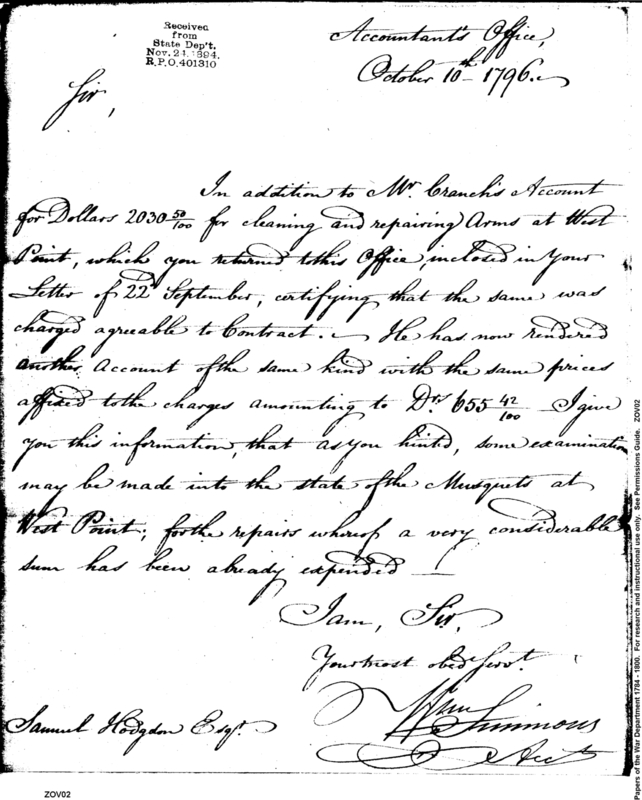 Received
from
State Dep't.
Nov. 21. 1894.
R.P.O. 401310
Accountant's Office,
October 10th 1796.
Sir,
In addition to Mr. Cranch's Account
for Dollars 2030 50/100 for cleaning and repairing Arms at West
Point, which you returned to this Office, inclosed in Your
Letter of 22d September, certifying that the same was
charged agreable to Contract. He has now rendered
another Account of the same kind with the same prices
affixed to the charges amounting to Drs 655 42/100 I give
you this information, that as you hinted, some examination
may be made into the state of the Musquets at
West Point, for the repairs whereof a very considerable
sum has been already expended
I am, Sir,
Your most obed. servt.
Wm Simmons
Acct
Samuel Hodgdon Esqr.
ZOV02
Papers of the War Department 1784 - 1800. For research and instructional use only. See Permissions Guide. ZOV02